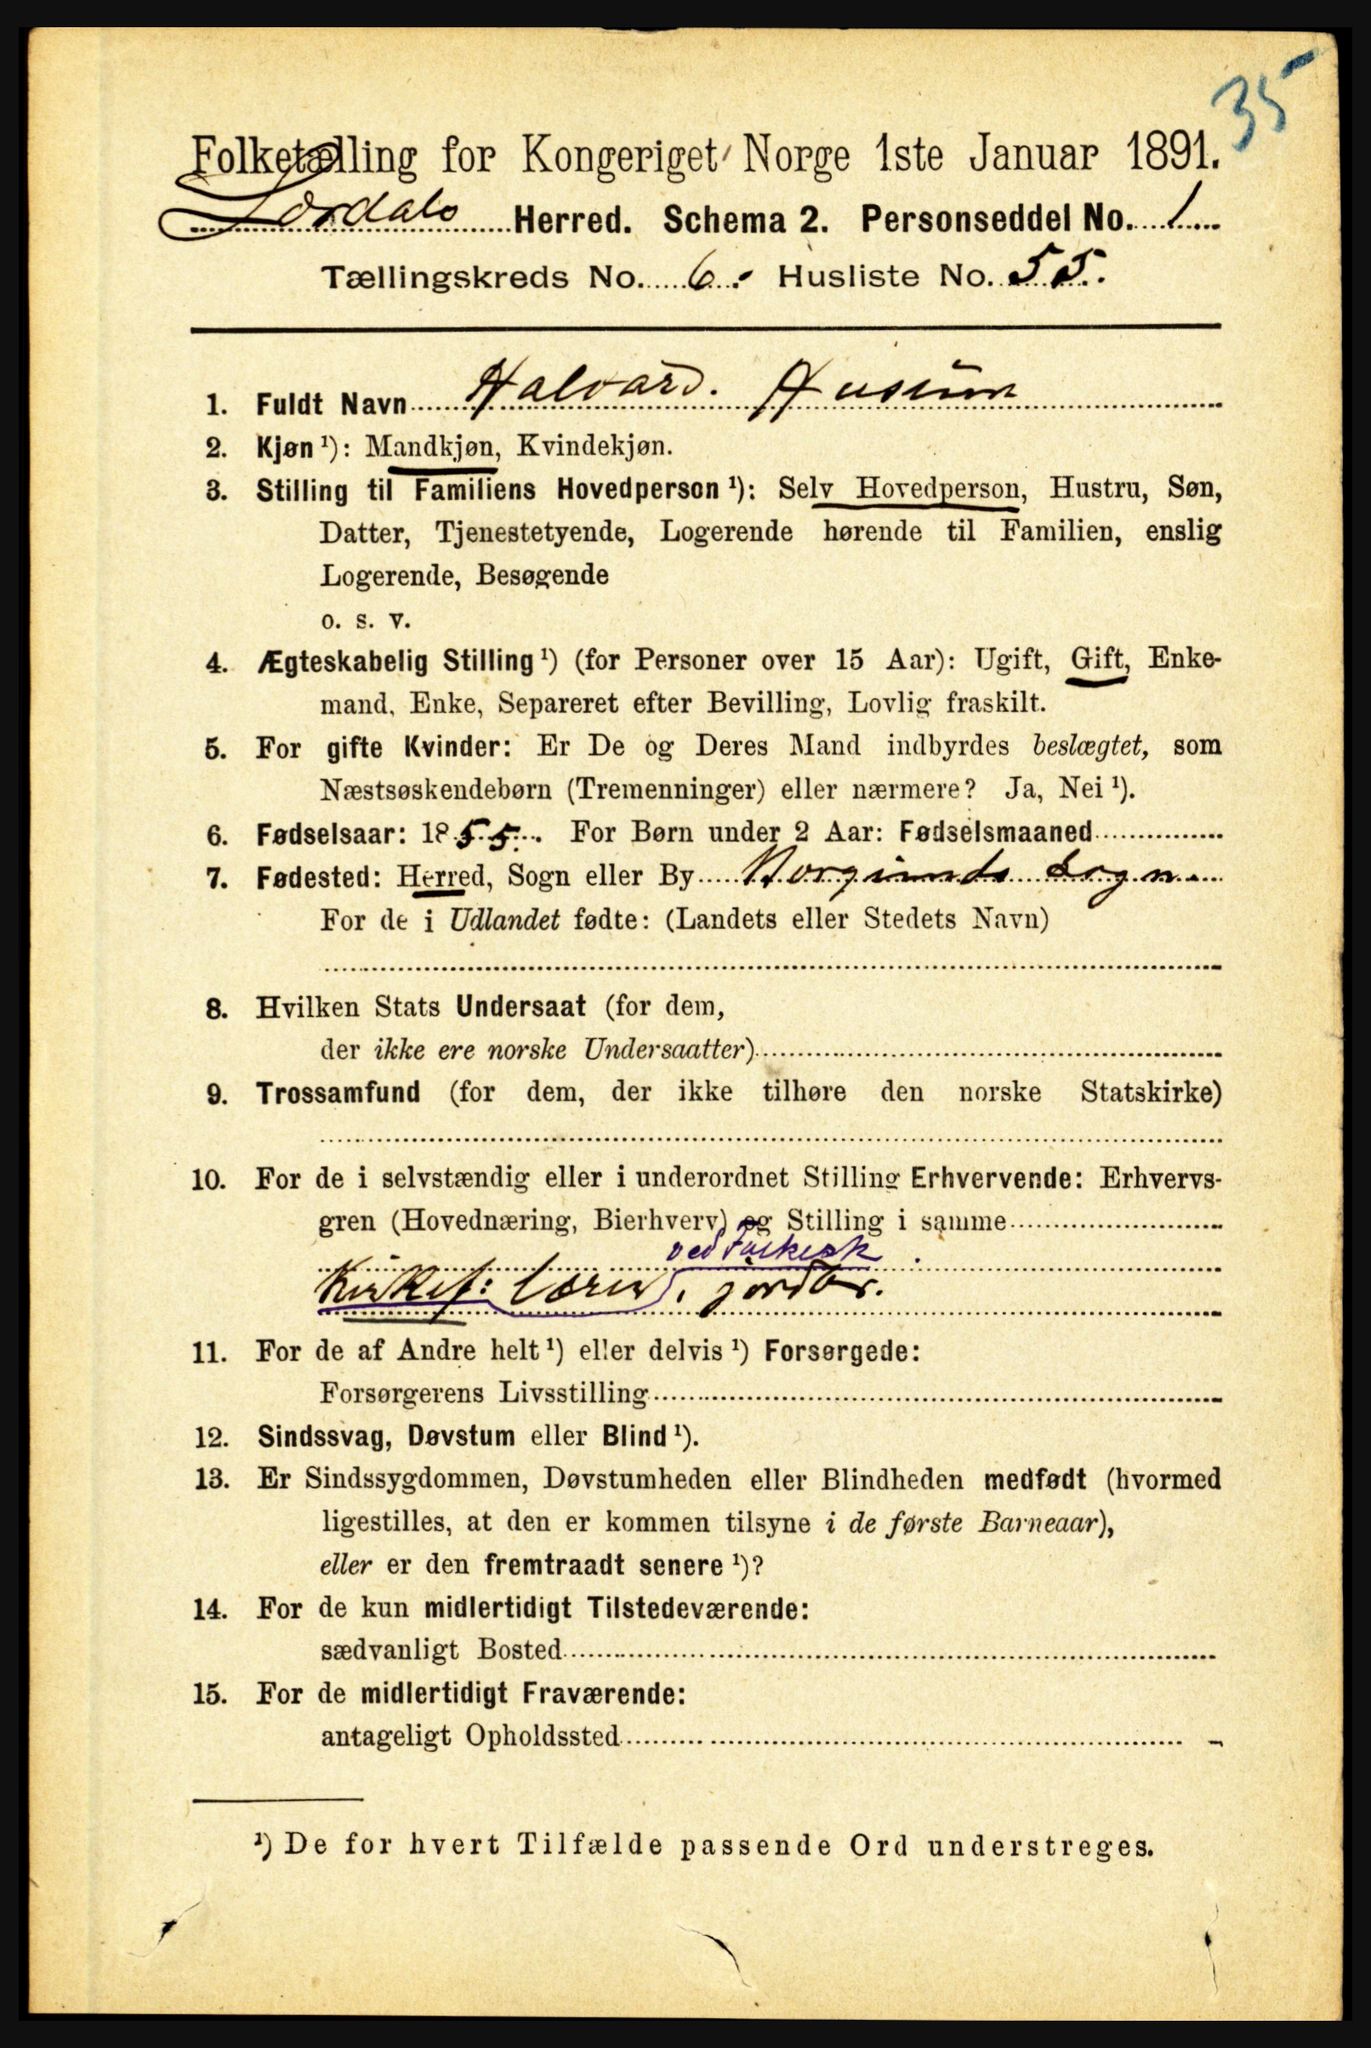 35
Folketælling for Kongeriget Norge 1ste Januar 1891.
Lærdals Herred. Schema 2. Personseddel No. 1
Tællingskreds No. 6. Husliste No. 55.
1. Fuldt Navn Halvard. Husum
2. Kjøn ¹): Mandkjøn, Kvindekjøn.
3. Stilling til Familiens Hovedperson ¹): Selv Hovedperson, Hustru, Søn,
Datter, Tjenestetyende, Logerende hørende til Familien, enslig
Logerende, Besøgende
o. s. v.
4. Ægteskabelig Stilling ¹) (for Personer over 15 Aar): Ugift, Gift, Enke-
mand, Enke, Separeret efter Bevilling, Lovlig fraskilt.
5. For gifte Kvinder: Er De og Deres Mand indbyrdes beslægtet, som
Næstsøskendebørn (Tremenninger) eller nærmere? Ja, Nei ¹).
6. Fødselsaar: 1855. For Børn under 2 Aar: Fødselsmaaned
7. Fødested: Herred, Sogn eller By Borgunds Sogn
For de i Udlandet fødte: (Landets eller Stedets Navn)
8. Hvilken Stats Undersaat (for dem,
der ikke ere norske Undersaatter)
9. Trossamfund (for dem, der ikke tilhøre den norske Statskirke)
10. For de i selvstændig eller i underordnet Stilling Erhvervende: Erhvervs-
gren (Hovednæring, Bierhverv) og Stilling i samme
ved Folkesk
Kirkes: Lærer, jordbr.
11. For de af Andre helt ¹) eller delvis ¹) Forsørgede:
Forsørgerens Livsstilling
12. Sindssvag, Døvstum eller Blind ¹).
13. Er Sindssygdommen, Døvstumheden eller Blindheden medfødt (hvormed
ligestilles, at den er kommen tilsyne i de første Barneaar),
eller er den fremtraadt senere ¹)?
14. For de kun midlertidigt Tilstedeværende:
sædvanligt Bosted
15. For de midlertidigt Fraværende:
antageligt Opholdssted
¹) De for hvert Tilfælde passende Ord understreges.